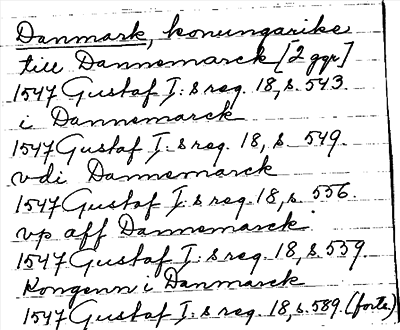 Danmark, konungarike
till Dannemarck [2 ggr]
1547 Gustaf I:s reg. 18, s. 543.
i Dannemarck
1547 Gustaf I:s reg. 18, s. 549.
vdi Dannemarck
1547 Gustaf I:s reg. 18, s. 556.
vp aff Dannemarck
1547 Gustaf I:s reg. 18, s. 559.
Kongenn i Danmarck
1547 Gustaf I:s reg. 18, s. 589. (forts.)